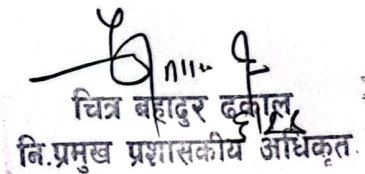 चित्र बहादुर ढकाल
नि.प्रमुख प्रशासकीय अधिकृत